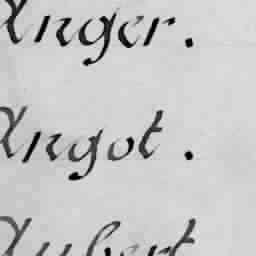 Anger.
Angot.
Aubert